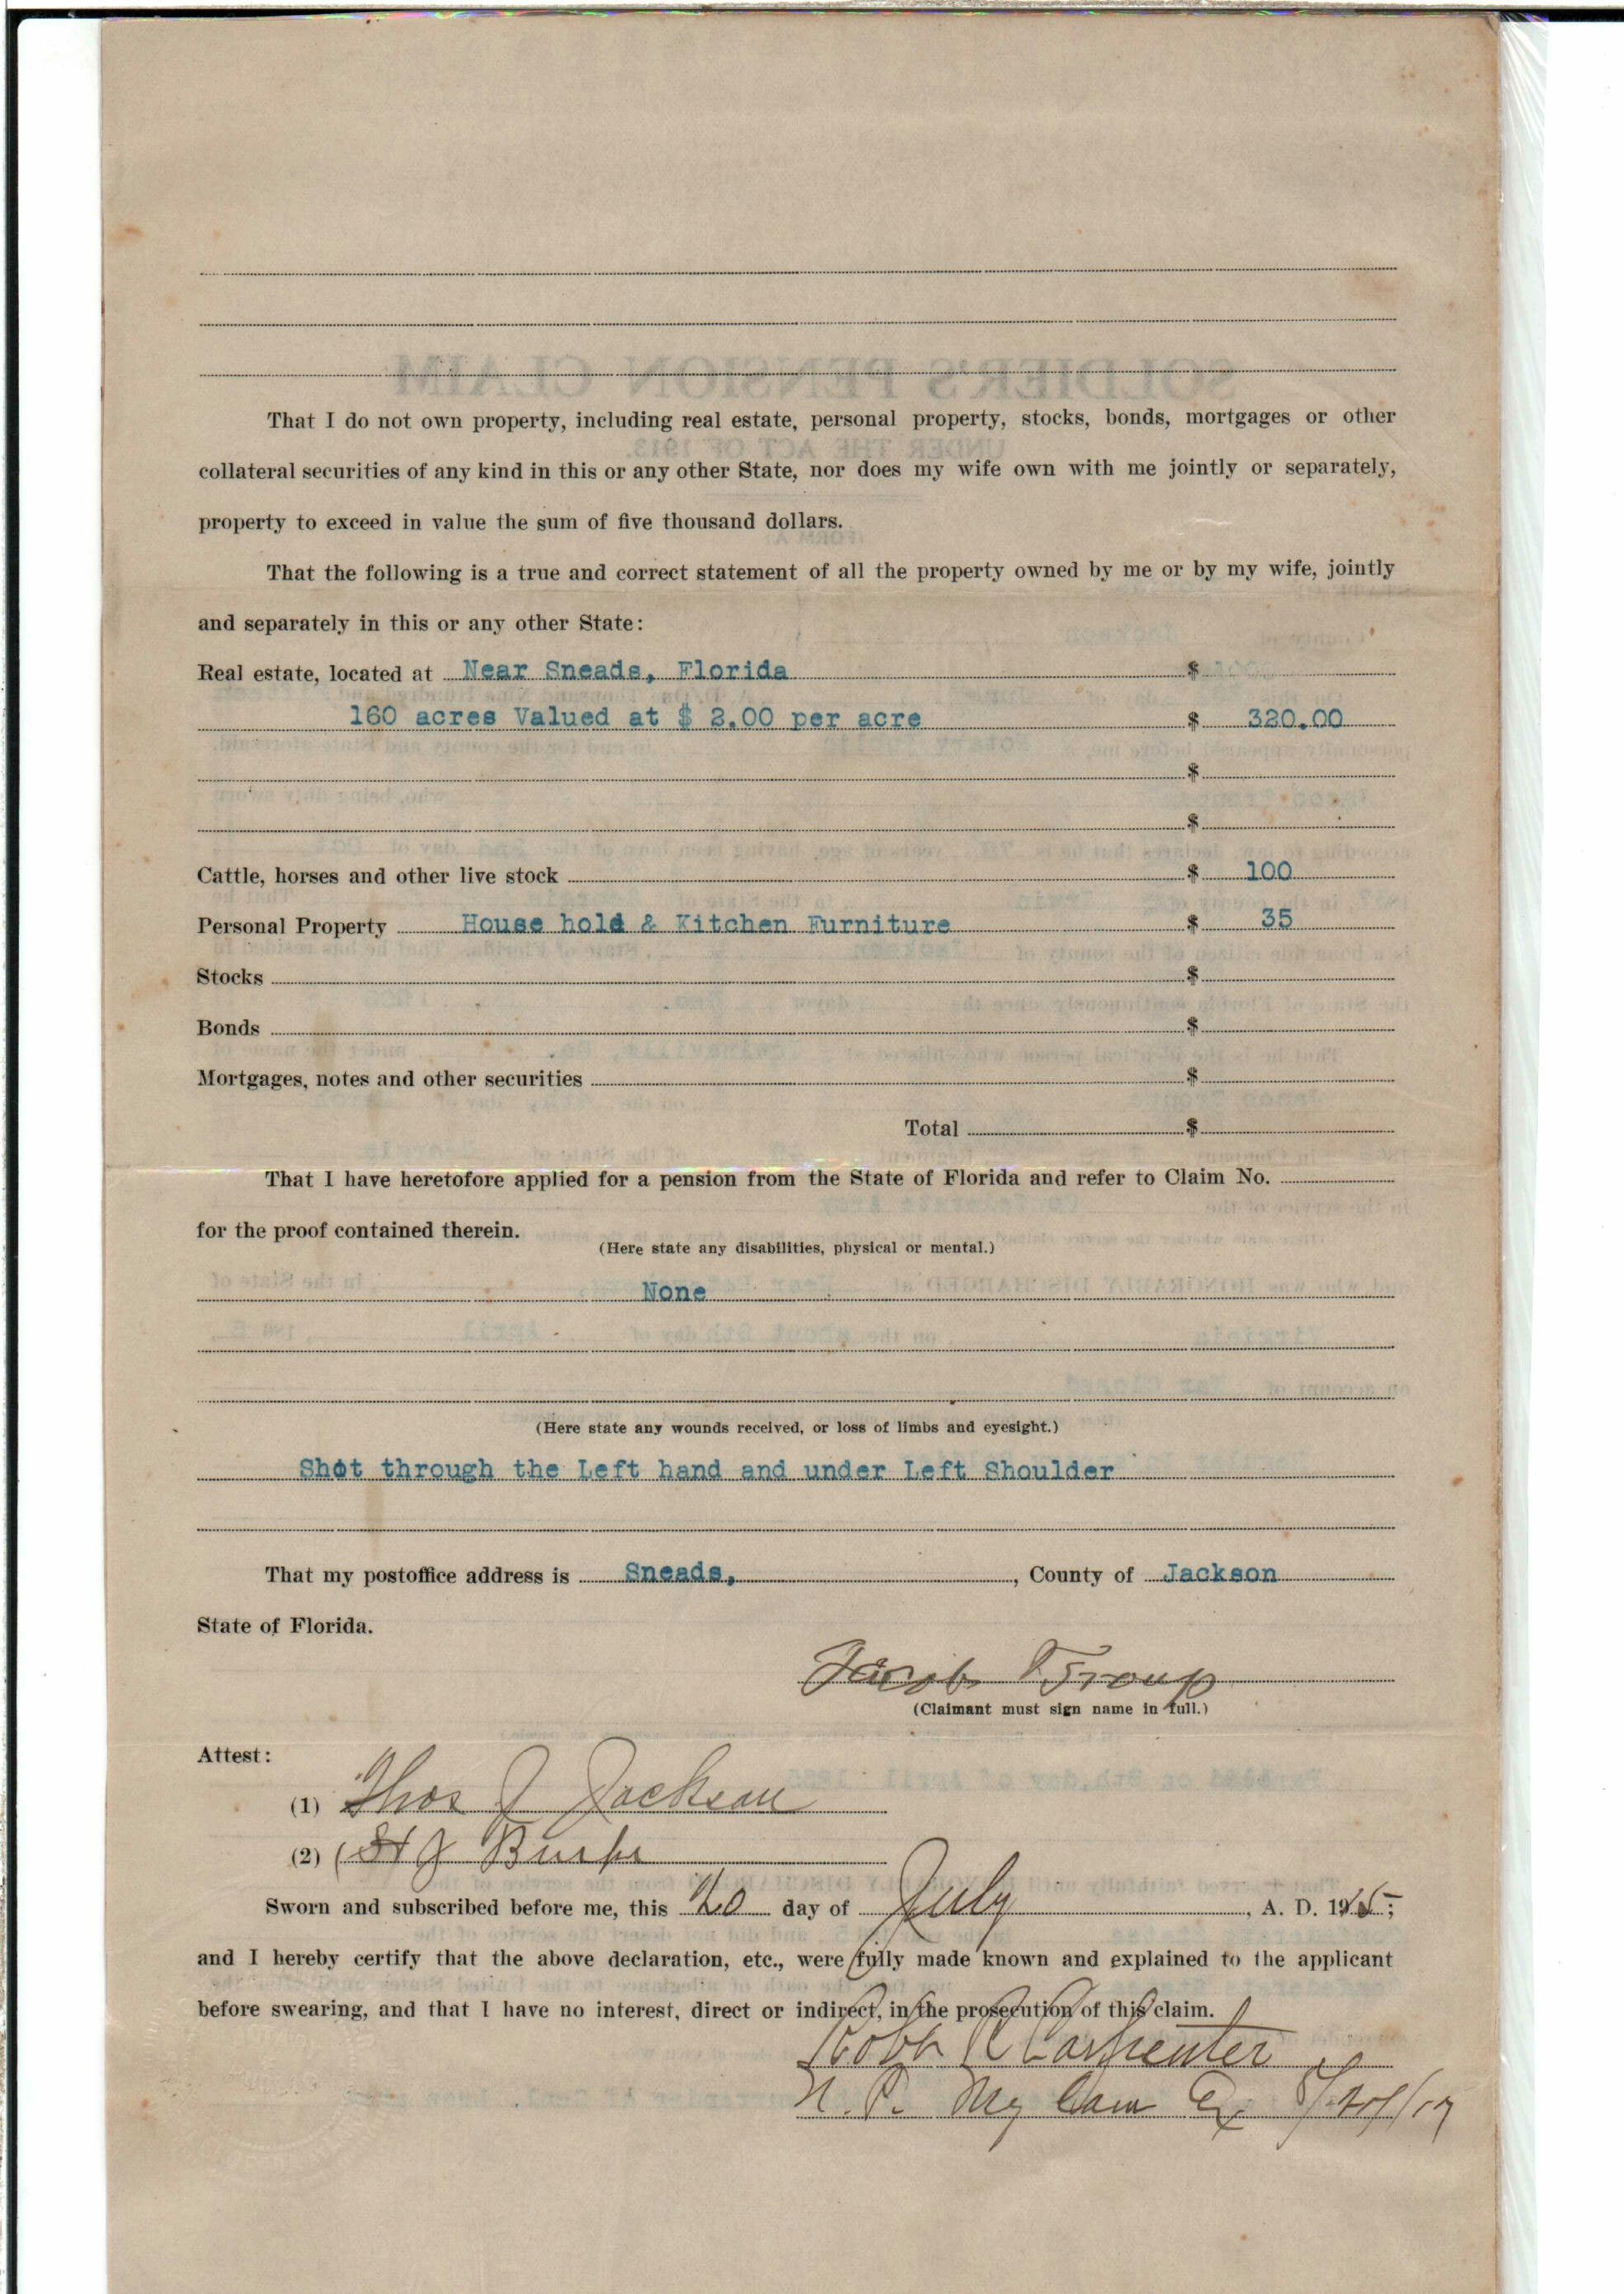 That I do not own property, including real estate, personal property, stocks, bonds, mortgages or other
collateral securities of any kind in this or any other State, nor does my wife own with me jointly or separately,
property to exceed in value the sum of five thousand dollars.
That the following is a true and correct statement of all the property owned by me or by my wife, jointly
and separately in this or any other State:
Real estate, located at Near Sneads, Florida $
160 acres Valued at $ 2.00 per acre $ 320.00
$
$
Cattle, horses and other live stock $ 100
Personal Property House hold & Kitchen Furniture $ 35
Stocks $
Bonds $
Mortgages, notes and other securities $
Total $
That I have heretofore applied for a pension from the State of Florida and refer to Claim No.
for the proof contained therein.
(Here state any disabilities, physical or mental.)
None
(Here state any wounds received, or loss of limbs and eyesight.)
Shot through the Left hand and under Left Shoulder
That my postoffice address is Sneads, , County of Jackson
State of Florida.
Jacob Troup
(Claimant must sign name in full.)
Attest:
(1) Thos J Jackson
(2) H J
Sworn and subscribed before me, this 20 day of July, A. D. 1915;
and I hereby certify that the above declaration, etc., were fully made known and explained to the applicant
before swearing, and that I have no interest, direct or indirect, in the prosecution of this claim.
Carpenter
N. P. My Com Ex